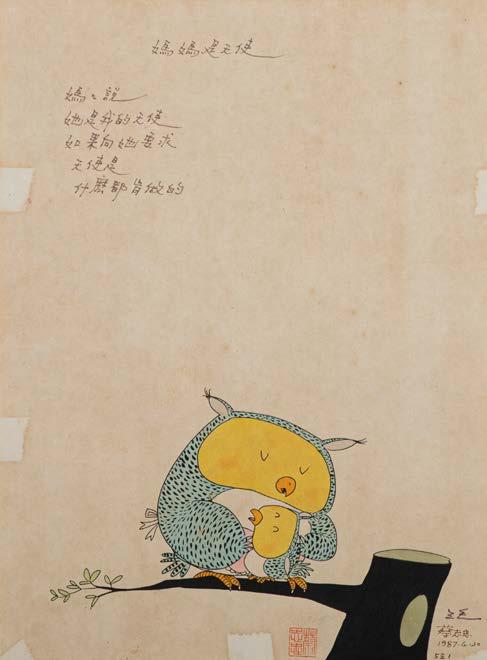 媽媽是天使
媽々說
她是我的天使
如果向她要求
天使是
什麼都肯做的
蔡志忠
1987.6.20
531